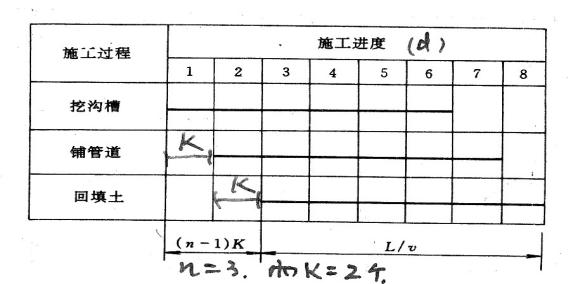 施工过程
施工进度 (d)
1 2 3 4 5 6 7 8
挖沟槽
铺管道
K
K
回填土
(n-1)K
L/v
n=3.
K=2